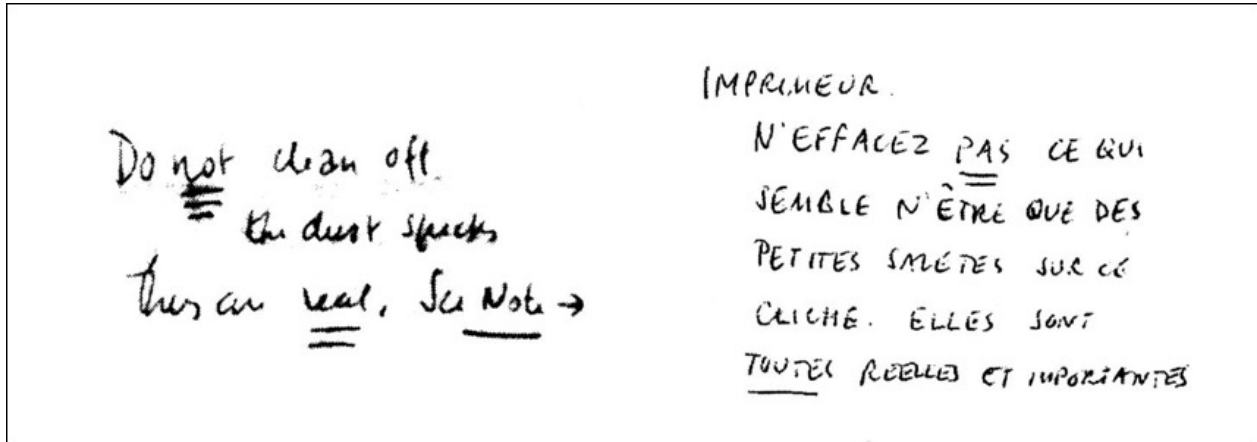 Do not clean off
the dust specks
They are real. See Note →
IMPRIMEUR.
N'EFFACEZ PAS CE QUI
SEMBLE N'ÊTRE QUE DES
PETITES SALETES SUR CE
CLICHE. ELLES SONT
TOUTES REELLES ET IMPORTANTES